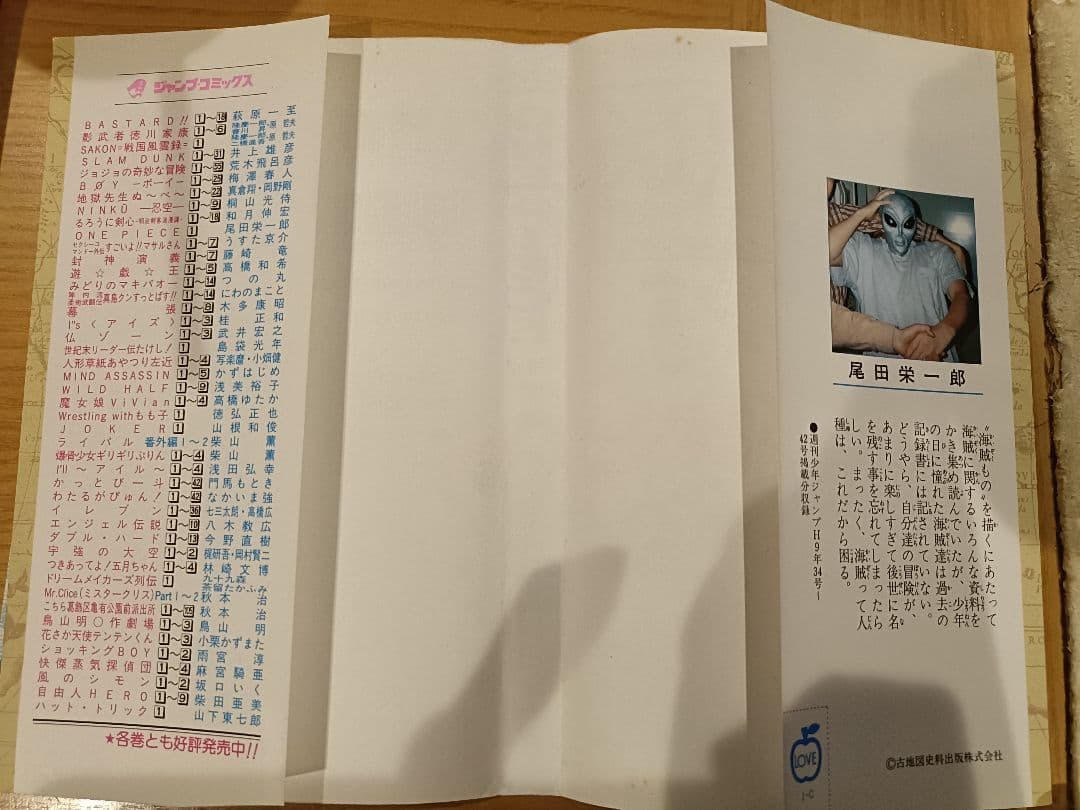 ジャンプ・コミックス
BASTARD!! 1〜18 萩原一至
影武者徳川家康 1〜6 隆慶一郎・原哲夫
SAKON=戦国風雲録= 1 隆慶一郎・原哲夫
SLAM DUNK 1〜31 井上雄彦
ジョジョの奇妙な冒険 荒木飛呂彦
BØY―ボーイ― 梅澤春人
地獄先生ぬ〜べ〜 1〜22 真倉翔・岡野剛
NINKŪ―忍空― 1〜9 桐山光侍
るろうに剣心 1〜18 和月伸宏
ONE PIECE 1 尾田栄一郎
セクシーコマンドー外伝すごいよ!!マサルさん 1〜7 うすた京介
封神演義 1〜7 藤崎竜
遊☆戯☆王 1〜5 高橋和希
みどりのマキバオー 1〜14 つの丸
陣内流柔術武闘伝真島クンすっとばす!! 1〜14 にわのまこと
幕張 1〜8 木多康昭
I"s〈アイズ〉 1〜3 桂正和
仏ゾーン 1〜3 武井宏之
世紀末リーダー伝たけし! 1 島袋光年
人形草紙あやつり左近 1〜4 写楽麿・小畑健
MIND ASSASSIN 1〜5 かずはじめ
WILD HALF 1〜9 浅美裕子
魔女娘ViVian 1〜4 高橋ゆたか
Wrestling withもも子 1 徳弘正也
JOKER 1 山根和俊
ライバル 番外編1〜2 柴山薫
爆骨少女ギリギリぷりん 1〜4 柴山薫
I'll〜アイル〜 1〜4 浅田弘幸
かっとび一斗 1〜42 門馬もとき
わたるがぴゅん! 1〜42 なかいま強
イレブン 1〜36 七三太朗・高橋広
エンジェル伝説 1〜10 八木教広
ダブル・ハード 1〜13 今野直樹
宇強の大空 1〜2 梶研吾・岡村賢二
つきあってよ!五月ちゃん 1〜4 林崎文博
ドリームメイカーズ列伝 1 九十九森 茶留たかふみ
Mr.Clice(ミスタークリス) Part1〜2 秋本治
こちら葛飾区亀有公園前派出所 秋本治
鳥山明○作劇場 1〜3 鳥山明
花さか天使テンテンくん 1〜3 小栗かずまた
ショッキングBOY 1〜2 雨宮淳
快傑蒸気探偵団 1〜4 麻宮騎亜
風のシモン 1〜2 坂口いく
自由人HERO 1〜9 柴田亜美
ハット・トリック 1 山下東七郎
★各巻とも好評発売中!!
尾田栄一郎
"海賊もの"を描くにあたって
海賊に関するいろんな資料を
かき集め読んでいたが、少年
の日に憧れた海賊達は過去の
記録書には記されていない。
どうやら、自分達の冒険が、
あまりに楽しすぎて後世に名
を残す事を忘れてしまったら
しい。まったく、海賊って人
種は、これだから困る。
●週刊少年ジャンプH9年34号〜
42号掲載分収録
LOVE
J-C
©古地図史料出版株式会社